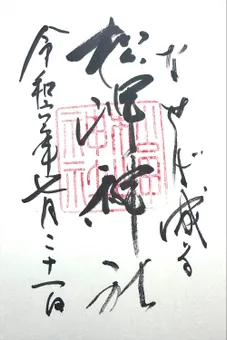 なせば成る
松岬神社
令和六年七月三十一日